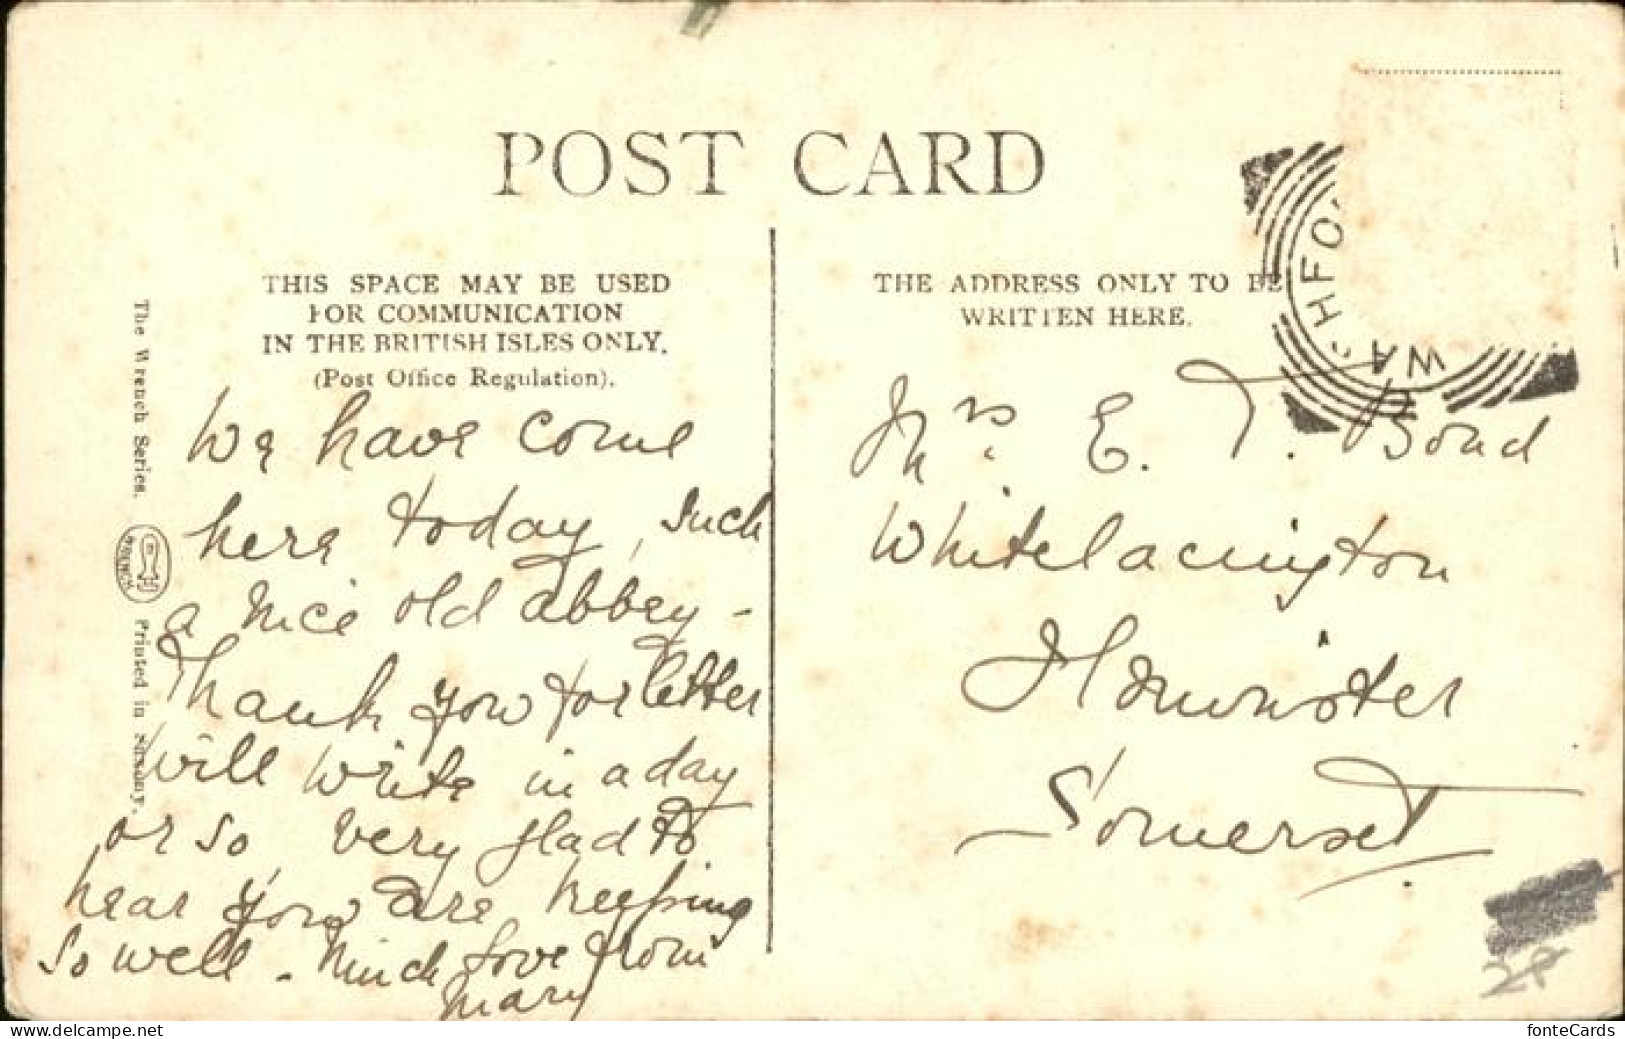 POST CARD
THIS SPACE MAY BE USED
FOR COMMUNICATION
IN THE BRITISH ISLES ONLY.
(Post Office Regulation).
We have come
here today, such
a nice old abbey -
Thank you for letter
will write in a day
or so, very glad to
hear you are keeping
so well - Much love from
Mary
The Wrench Series.
WRENCH
Printed in Saxony.
THE ADDRESS ONLY TO BE
WRITTEN HERE.
WASHFO
Mrs. E. T. Bond
Whitelacington
Ilminster
Somerset.
28
fonteCards